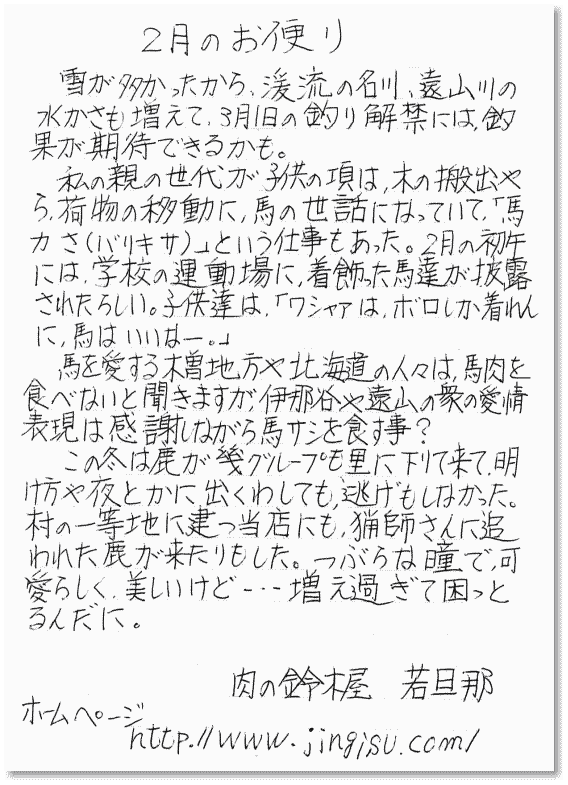 2月のお便り
雪が多かったから、渓流の名川、遠山川の
水かさも増えて、3月1日の釣り解禁には、釣
果が期待できるかも。
私の親の世代が子供の項は、木の搬出や
ら、荷物の移動に、馬の世話になっていて、「馬
力さ(バリキサ)」という仕事もあった。2月の初午
には、学校の運動場に、着飾った馬達が披露
されたらしい。子供達は、「ワシャァは、ボロしか着れん
に、馬はいいなー。」
馬を愛する木曽地方や北海道の人々は、馬肉を
食べないと聞きますが、伊那谷や遠山の衆の愛情
表現は感謝しながら馬サシを食す事?
この冬は鹿が幾グループも里に下りて来て、明
け方や夜とかに、出くわしても、逃げもしなかった。
村の一等地に建つ当店にも、猟師さんに追
われた鹿が来たりもした。つぶらな瞳で、可
愛らしく、美しいけど・・・増え過ぎて困っと
るんだに。
肉の鈴木屋 若旦那
ホームページ
http://www.jingisu.com/